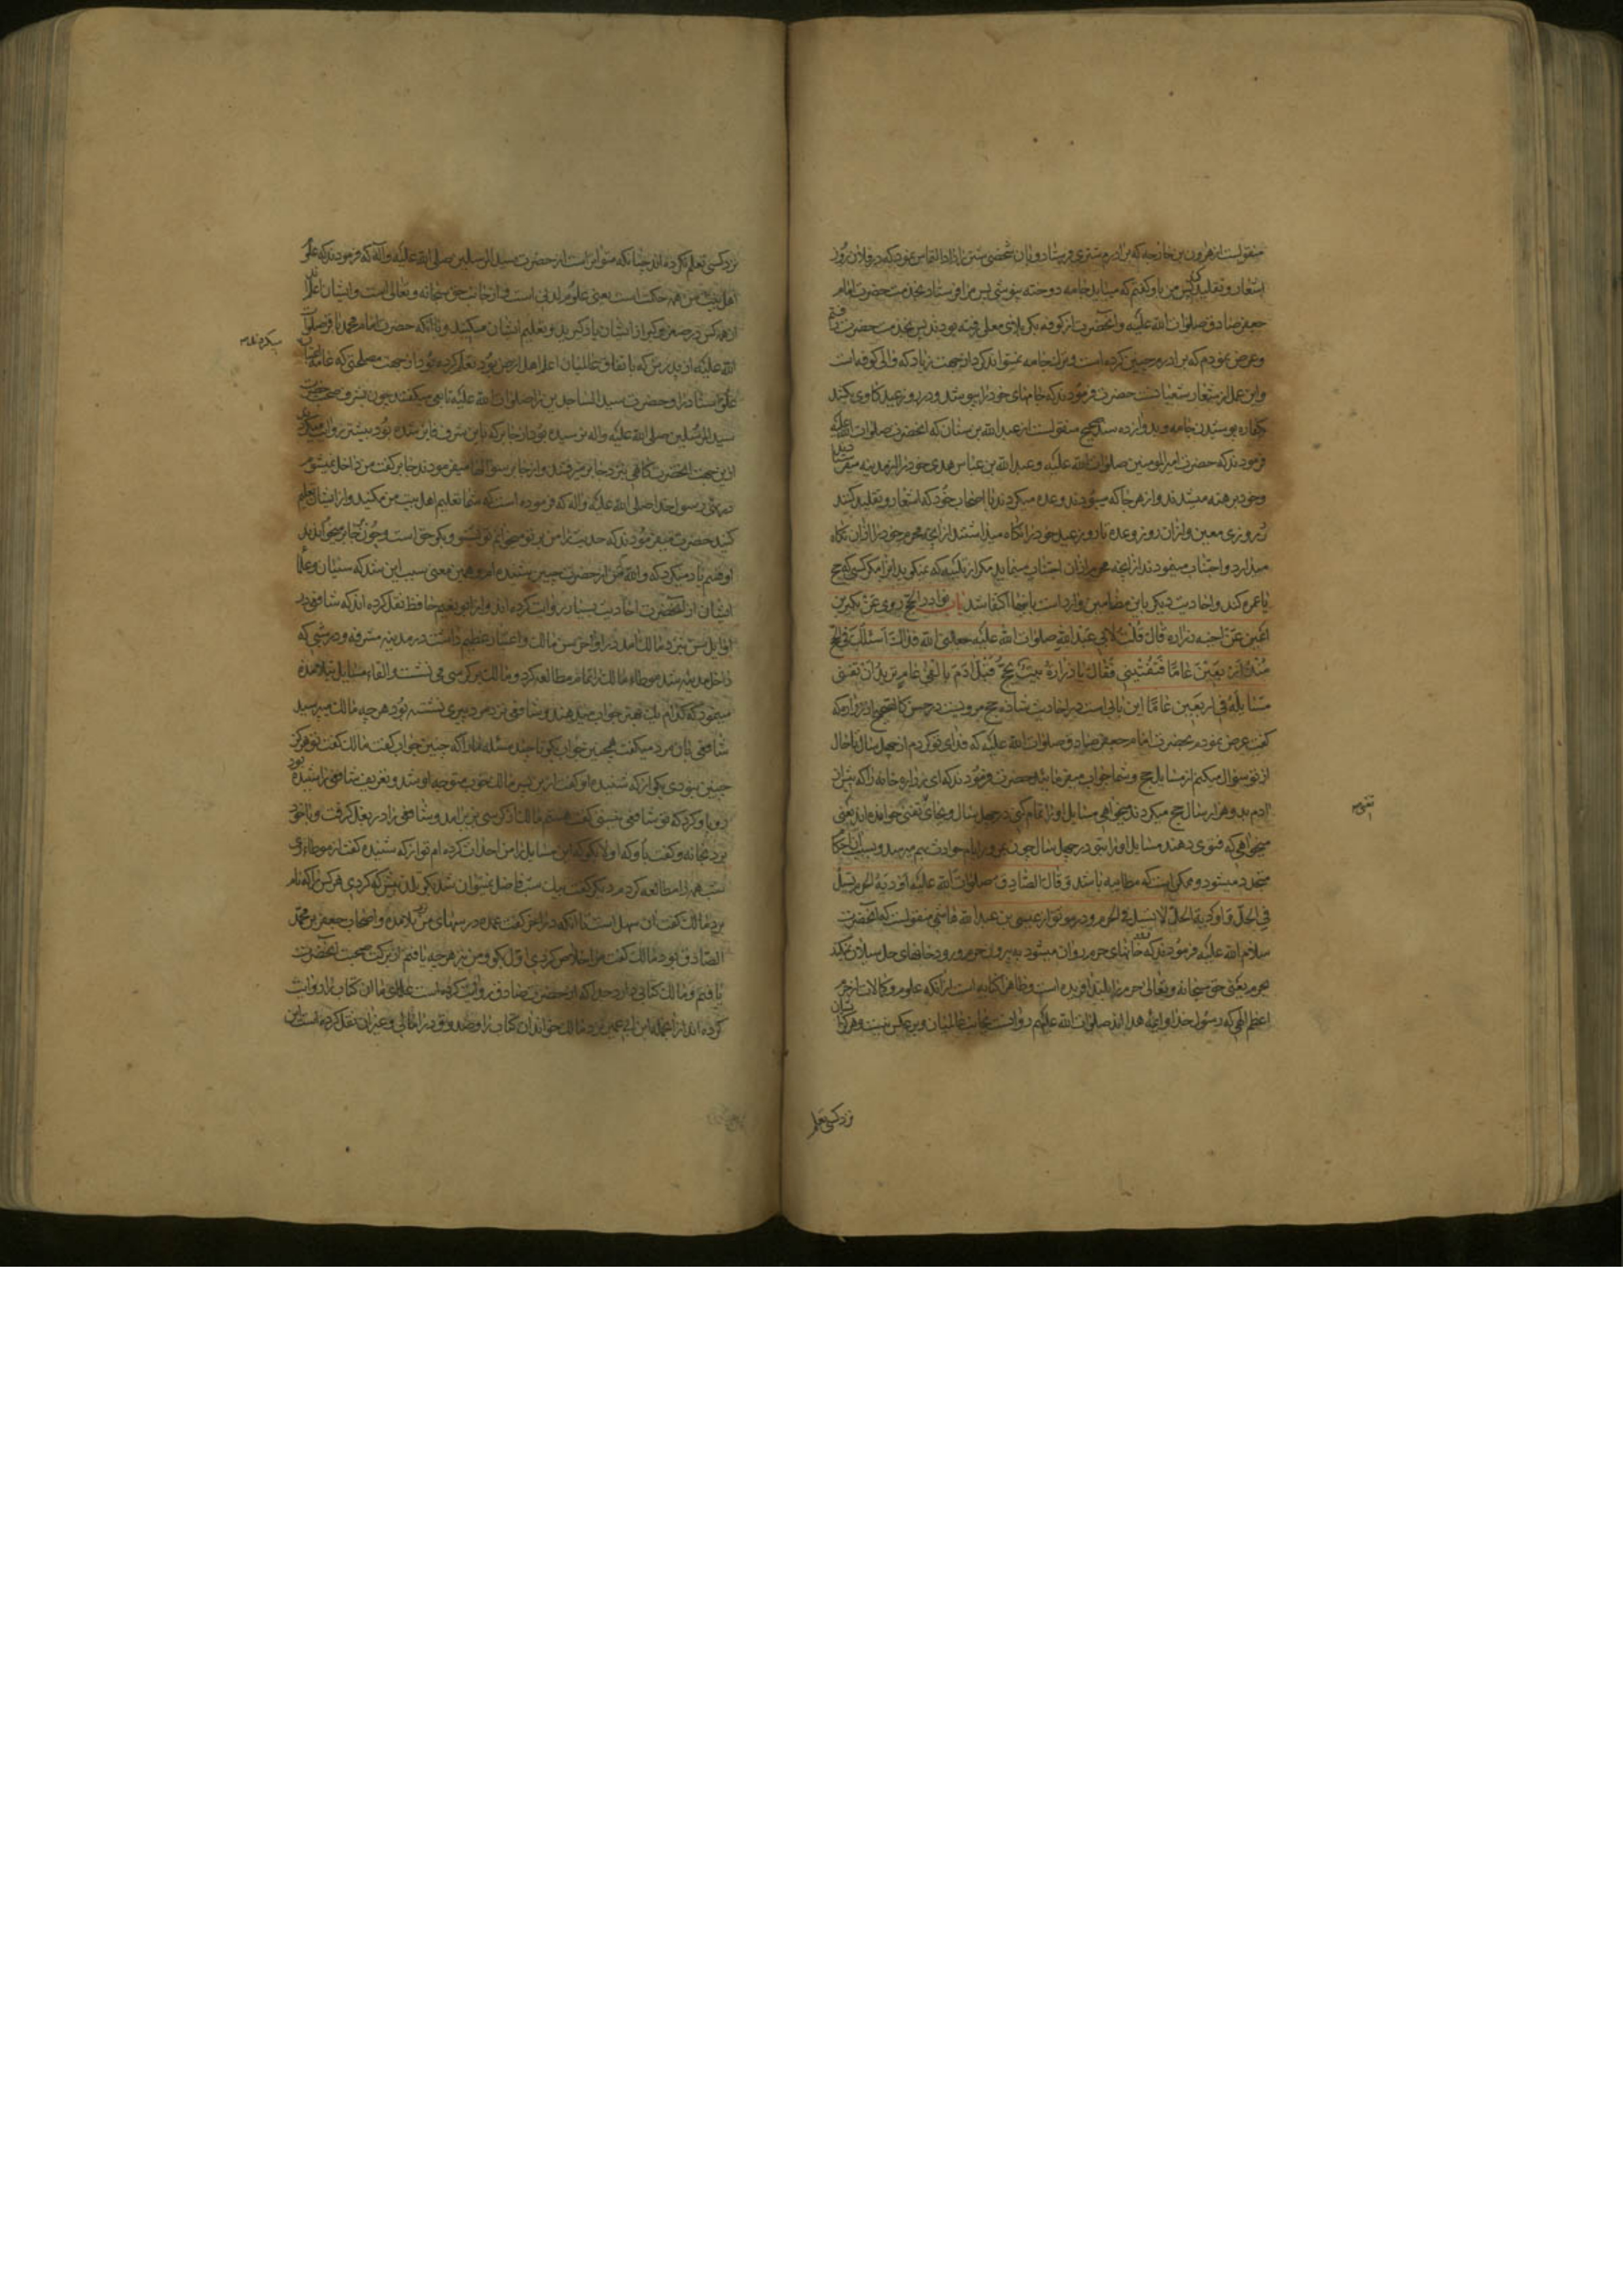 منقولست از هرون بن خارجه که برادرم شتری فرستاد و بان شخصی شتر ان داد القاس نمود که در فلان روز
اشعار و تقلید کن پس من باو گفتم که میباید جامه دوخته نپوشی پس مرا فرستاد بخدمت حضرت امام
جعفر صادق صلوات الله علیه و انحضرت از کوفه بودند پس بخدمت حضرت رفتم
وعرض نمودم که برادرم چنین کرده است و ترک جامه نمیتواند کرد از جهت زیاد که والی کوفه است
واین عمل از شعار شیعیانست حضرت فرمودند که جامهای خود را بپوشد و در روز عید کاوی بکشد
کفاره پوشیدن جامه و بدو از ده سند صحیح منقولست از عبد الله بن سنان که انحضرت صلوات الله علیه
فرمودند که حضرت امیر المومنین صلوات الله علیه و عبد الله بن عباس هدی خود را از مدینه میفرستادند
وخود برهنه میشدند و از هر جا که میبودند وعده میکردند با اصحاب خود که اشعار و تقلید کنند
در روزی معین و از ان روز وعده تا روز عید خود را نگاه میداشتند از انچه محرم خود را از ان نگاه
میدارد و اجتناب مینمودند از انچه محرم از ان اجتناب مینماید مگر از تلبیه که نمیگوید انرا مگر کسی که حج
یا عمره کند و احادیث دیگر باین مضامین وارد است باینها اکتفا شد باب نوادر الحج روی عن بکیر بن
اعین عن اخیه زراره قال قلت لابی عبد الله صلوات الله علیه جعلنی الله فداک اسئلک فی الحج
منذ اربعین عاما فتفتینی فقال یا زرارة بیت یحج قبل ادم بالفی عام ترید ان تفنی
مسایله فی اربعین عاما این بابی است در احادیث شاذه حج مرویست در حسن کالصحیح از زراره که
گفت عرض نمودم بحضرت امام جعفر صادق صلوات الله علیه که فدای تو گردم از چهل سال تا حال
از تو سؤال میکنم از مسایل حج و شما جواب میفرمائید حضرت فرمودند که ای زراره خانه را که پیش از
ادم بدو هزار سال حج میکردند میخواهی مسایل او را تمام کنی در چهل سال و بجای تفنی خوانده اند یعنی
میخواهی که فتوی دهند مسایل او را بتو در چهل سال چون بمرور ایام حوادث بهم میرسد و بسبب ان احکام
متجدد میشود و ممکن است که مطایبه باشد و قال الصادق صلوات الله علیه اودیة الحرم تسیل
فی الحل و اودیة الحل لا تسیل فی الحرم و در موثق از عیسی بن عبد الله هاشمی منقولست که انحضرت
سلام الله علیه فرمودند که رودخانهای حرم روان میشود به بیرون حرم و رودخانهای حل سیلان نمیکند
بحرم یعنی حق سبحانه و تعالی حرم را بلند افریده است و ظاهرا کنایه است از انکه علوم و کمالات از حرم
اعظم الهی که رسول خدا و ائمه هدا اند صلوات الله علیهم روانست بجانب عالمیان و بر عکس نیست و هرگز ایشان
تفتی
نزد کسی تعلم
نزد کسی تعلم نکرده اند چنانکه متواتر است از حضرت سید المرسلین صلی الله علیه و اله که فرمودند که علم
اهل بیت من همه حکمت است یعنی علوم لدنی است و از جانب حق سبحانه و تعالی است و ایشان اعلم اند
از همه کس در صغر و کبر از ایشان یاد گیرید و تعلیم ایشان میکنید و با انکه حضرت امام محمد باقر صلوات
الله علیه از پدرش که باتفاق عالمیان اعلم اهل ارض بود تعلم کرده بود از جهت مصلحتی که عامه
علو اسناد را و حضرت سید الساجدین را صلوات الله علیه تابعی میگفتند چون بشرف صحبت حضرت
سید المرسلین صلی الله علیه و اله نرسیده بود از جابر که باین شرف فایز شده بود بیشتر روایت میکردند
ازین جهت انحضرت گاهی بنزد جابر میرفتند و از جابر سؤالها میفرمودند جابر گفت من داخل نمیشوم
در نهی رسول خدا صلی الله علیه و اله که فرموده است که شما تعلیم اهل بیت من مکنید و از ایشان تعلیم
گیرید حضرت میفرمودند که حدیث را من بر تو میخوانم تو بشنو و بگو حق است و چون جابر میخواندند
او قسم یاد میکرد که والله من از حضرت چنین شنیده ام و همین معنی سبب این شد که سنیان و علمای
ایشان از انحضرت احادیث بسیار روایت کرده اند و از ابو نعیم حافظ نقل کرده اند که شافعی در
اوایل سن بنزد مالک امد در اواخر سن مالک و اعتبار عظیم داشت در مدینه مشرفه و در شبی که
داخل مدینه شد موطاء مالک را تمام مطالعه کرد و مالک بر کرسی می نشست و القاء مسایل بتلامذه
مینمود که کدام یک بهتر جواب میدهند و شافعی نزد مرد پیری نشسته بود هر چه مالک میپرسید
شافعی بان مرد میگفت همچنین جواب بگو تا چند مسئله ادا کرد که چنین جواب گفت مالک گفت تو هرگز
چنین نبودی بگو از که شنیده او گفت ازین پسر مالک خود متوجه او شد و تعریف شافعی را شنیده بود
رو باو کرد که تو شافعی نیستی گفت هستم مالک از کرسی بزیر امد و شافعی را در بغل گرفت و با خود
برد بخانه و گفت باو که اولا بگو که این مسایل را من احداث کرده ام تو از که شنیده گفت از موطاء تو دی
شب همه را مطالعه کردم دیگر گفت بیک شب فاضل نمیتوان شد بگو تلمذ پیش که کردی هر کس را که نام
برد مالک گفت ان سهل است تا انکه در اخر گفت عمده درسهای من نزد تلامذه و اصحاب جعفر بن محمد
الصادق بود مالک گفت مرا خلاص کردی اول بگو و من نیز هر چه یافتم از برکت صحبت انحضرت
یافتم و مالک کتابی دارد جدا که از حضرت صادق روایت کرده است علمای ما ان کتاب را روایت
کرده اند از انجمله ابن ابی عمیر نزد مالک خوانده ان کتاب را و صدوق در امالی و غیر ان نقل کرده است این